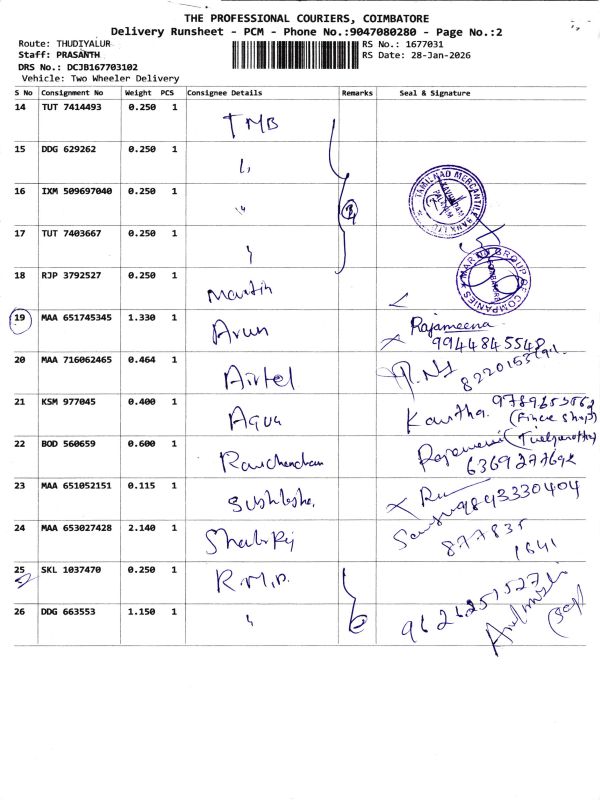 THE PROFESSIONAL COURIERS, COIMBATORE
Delivery Runsheet - PCM - Phone No.:9047080280 - Page No.:2
Route: THUDIYALUR
RS No.: 1677031
Staff: PRASANTH
RS Date: 28-Jan-2026
DRS No.: DCJB167703102
Vehicle: Two Wheeler Delivery
S No Consignment No Weight PCS Consignee Details Remarks Seal & Signature
14 TUT 7414493 0.250 1 TMB
15 DDG 629262 0.250 1 "
16 IXM 509697040 0.250 1 "
TAMILNAD MERCANTILE BANK LTD
17 TUT 7403667 0.250 1 "
18 RJP 3792527 0.250 1 Martin
MARTIN GROUP OF COMPANIES
19 MAA 651745345 1.330 1 Arun Rajameena
9944845548
20 MAA 716062465 0.464 1 Airtel
21 KSM 977045 0.400 1 Aqua Kavitha.
22 BOD 560659 0.600 1
23 MAA 651052151 0.115 1 9843330404
24 MAA 653027428 2.140 1 877835
1641
25 SKL 1037470 0.250 1 R.M.D.
26 DDG 663553 1.150 1 " 9626251527